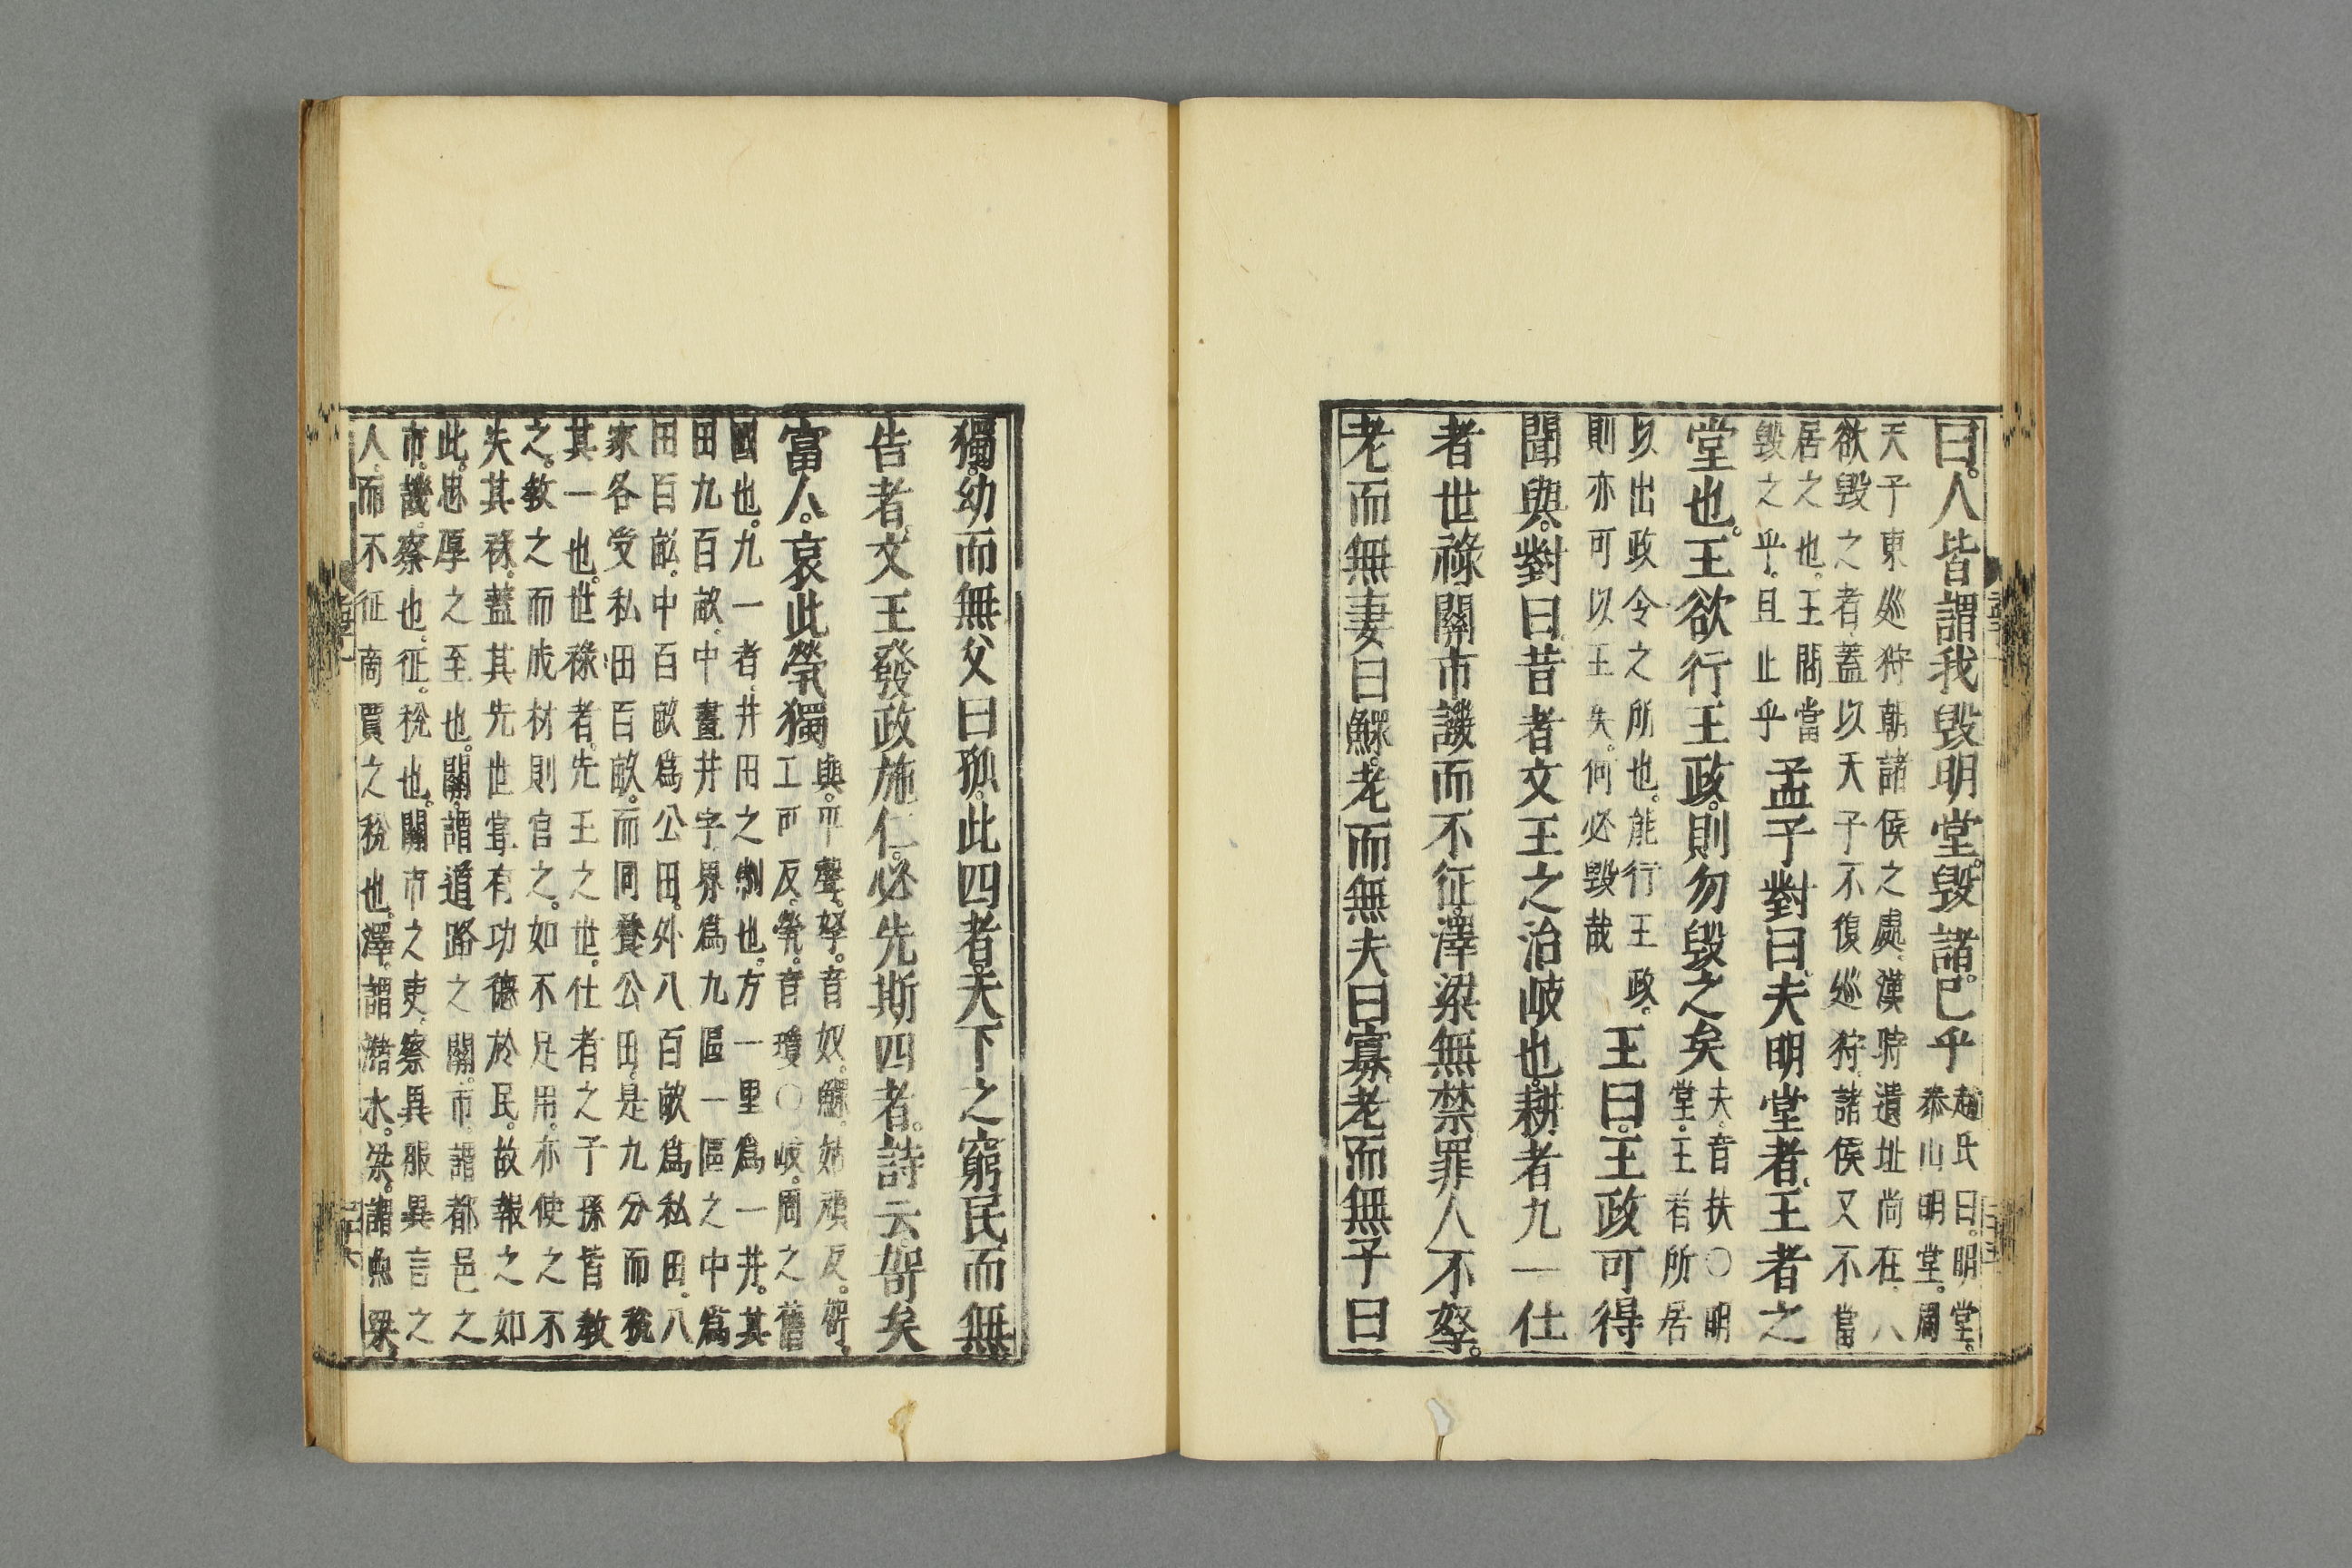 曰。人皆謂我毀明堂。毀諸。已乎趙氏曰。明堂。
泰山明堂。周
天子東巡狩朝諸侯之處。漢時遺址尚在。人
欲毀之者。蓋以天子不復巡狩。諸侯又不當
居之也。王問當
毀之乎。且止乎孟子對曰。夫明堂者。王者之
堂也。王欲行王政。則勿毀之矣夫。音扶〇明
堂。王者所居
以出政令之所也。能行王政。
則亦可以王矣。何必毀哉王曰。王政可得
聞與。對曰。昔者文王之治岐也。耕者九一仕
者世祿關市譏而不征。澤梁無禁罪人不孥。
老而無妻曰鰥。老而無夫曰寡。老而無子曰
獨。幼而無父曰孤。此四者。天下之窮民而無
告者。文王發政施仁。必先斯四者。詩云。哿矣
富人。哀此煢獨與。平聲。孥。音奴。鰥。姑頑反。哿。
工可反。煢。音瓊〇岐。周之舊
國也。九一者。井田之制也。方一里爲一井。其
田九百畝。中畫井字。界爲九區一區之中爲
田百畝。中百畝爲公田。外八百畝爲私田。八
家各受私田百畝。而同養公田。是九分而稅
其一也。世祿者。先王之世。仕者之子孫皆教
之。教之而成材則官之。如不足用。亦使之不
失其祿。蓋其先世嘗有功德於民。故報之如
此。忠厚之至也。關。謂道路之關。市。謂都邑之
市。譏。察也。征。稅也。關市之吏。察異服異言之
人。而不征商賈之稅也。澤。謂瀦水。梁。謂魚梁。